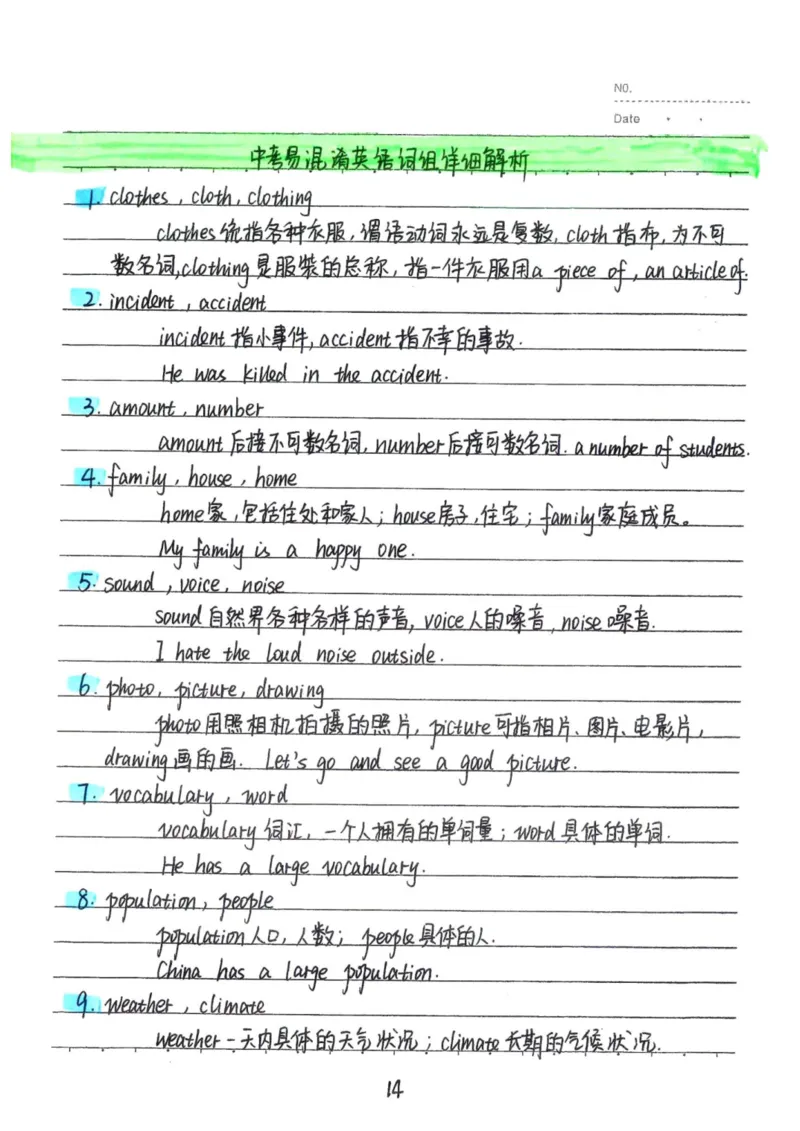 NO.
Date
中考易混淆英语词组详细解析
1. clothes , cloth , clothing
clothes 统指各种衣服,谓语动词永远是复数, cloth 指布,为不可
数名词,clothing 是服装的总称,指一件衣服用a piece of , an article of.
2. incident , accident
incident 指小事件, accident 指不幸的事故.
He was killed in the accident.
3. amount , number
amount 后接不可数名词, number后接可数名词. a number of students.
4. family , house , home
home家,包括住处和家人; house房子,住宅; family家庭成员。
My family is a happy one.
5. sound , voice , noise
sound 自然界各种各样的声音, voice 人的嗓音, noise噪音.
I hate the loud noise outside.
6. photo, picture, drawing
photo 用照相机拍摄的照片, picture 可指相片、图片、电影片,
drawing画的画. Let's go and see a good picture.
7. vocabulary , word
vocabulary 词汇, 一个人拥有的单词量; word 具体的单词.
He has a large vocabulary.
8. population , people
population 人口, 人数; people 具体的人.
China has a large population.
9. weather , climate
weather 一天内具体的天气状况; climate 长期的气候状况.
14